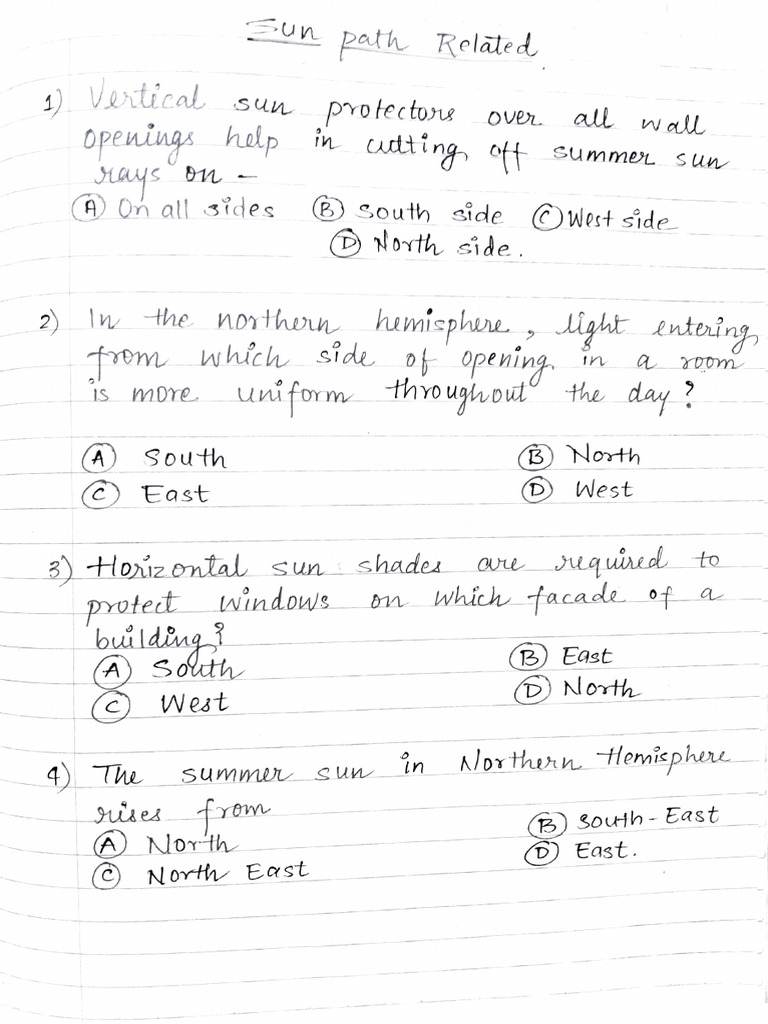 Sun path Related
1) Vertical sun protectors over all wall
openings help in cutting off summer sun
rays on –
Ⓐ On all sides Ⓑ South side Ⓒ West side
Ⓓ North side.
2) In the northern hemisphere, light entering
from which side of opening in a room
is more uniform throughout the day?
Ⓐ South Ⓑ North
Ⓒ East Ⓓ West
3) Horizontal sun shades are required to
protect windows on which facade of a
building?
Ⓐ South Ⓑ East
Ⓒ West Ⓓ North
4) The summer sun in Northern Hemisphere
rises from
Ⓐ North Ⓑ South-East
Ⓒ North East Ⓓ East.